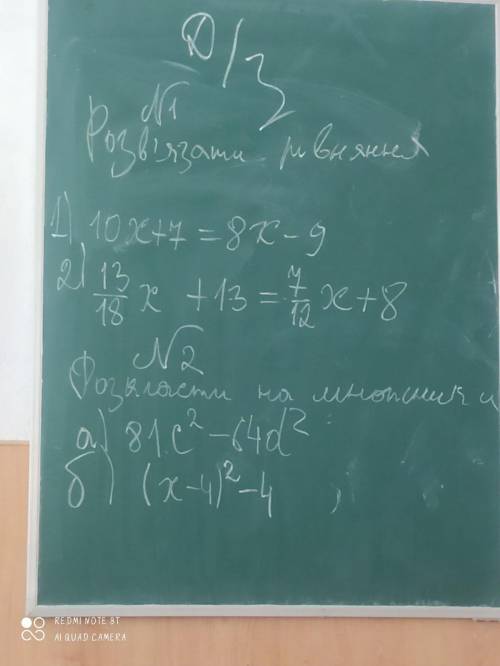 Д/З
№1
Розв'язати рівняння
1) 10x+7=8x-9
2) 13/18 x + 13 = 7/12 x + 8
№2
Розкласти на множники
а) 81c²-64d²
б) (x-4)²-4,
REDMI NOTE 8T
AI QUAD CAMERA